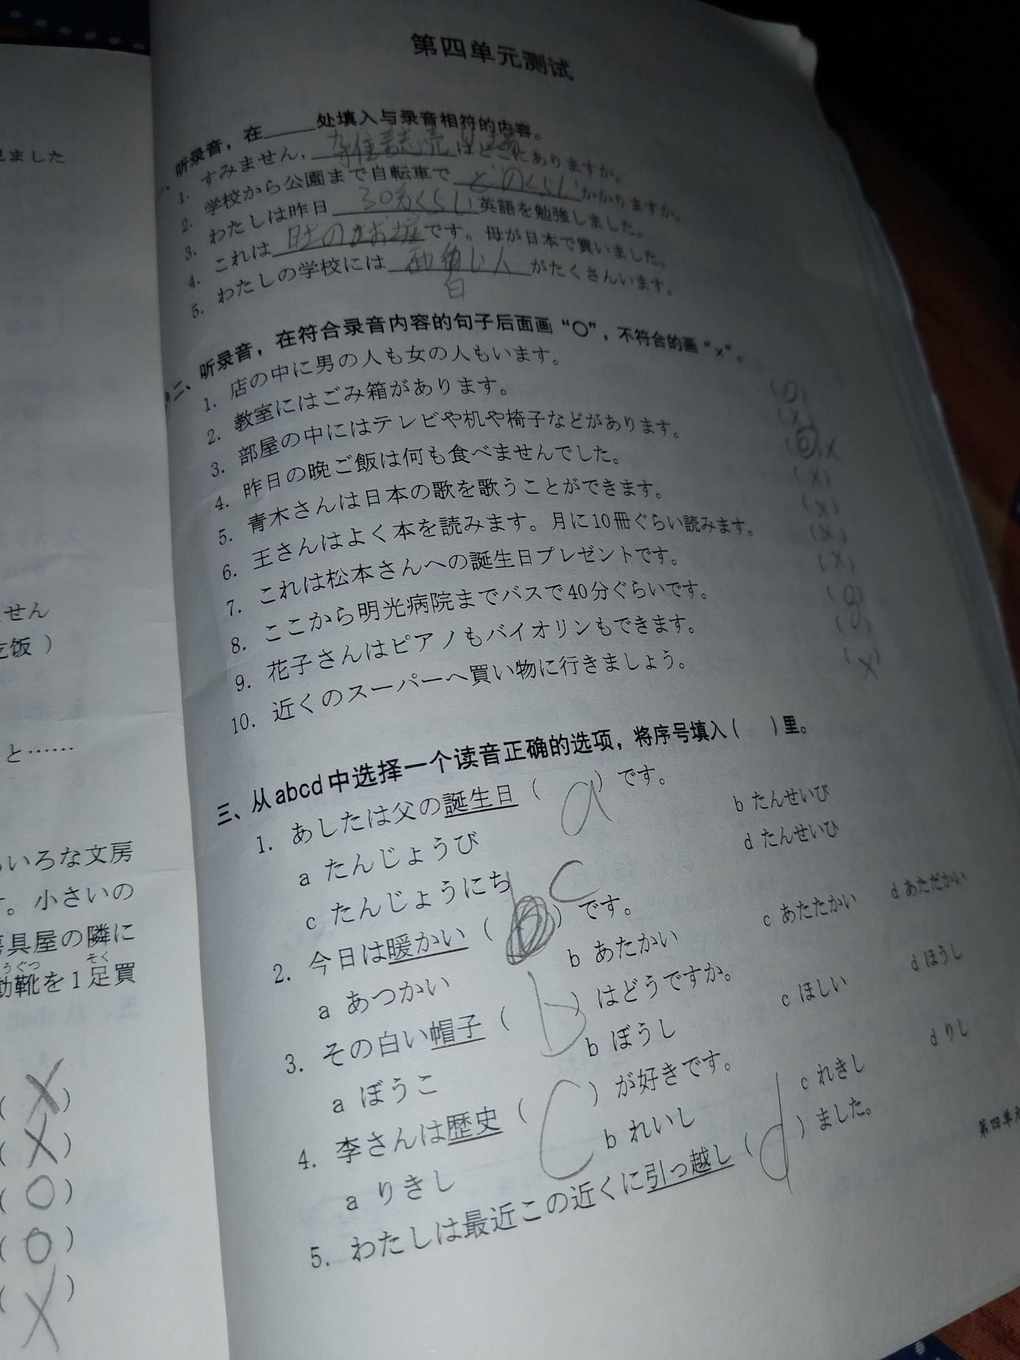 第四单元测试
一、听录音，在____处填入与录音相符的内容。
1. すみません，はどこにありますか。
2. 学校から公園まで自転車で どのくらい かかりますか。
3. わたしは昨日 30分ぐらい 英語を勉強しました。
4. これは です。母が日本で買いました。
5. わたしの学校には 面白い人 がたくさんいます。
二、听录音，在符合录音内容的句子后面画“○”，不符合的画“×”。
1. 店の中に男の人も女の人もいます。
2. 教室にはごみ箱があります。
3. 部屋の中にはテレビや机や椅子などがあります。
4. 昨日の晩ご飯は何も食べませんでした。
5. 青木さんは日本の歌を歌うことができます。
6. 王さんはよく本を読みます。月に10冊ぐらい読みます。
7. これは松本さんへの誕生日プレゼントです。
8. ここから明光病院までバスで40分ぐらいです。
9. 花子さんはピアノもバイオリンもできます。
10. 近くのスーパーへ買い物に行きましょう。
(○)
(×)
(○)×
(×)
(×)
(×)
(×)
(○)
(×)
三、从abcd中选择一个读音正确的选项，将序号填入（ ）里。
1. あしたは父の誕生日（ a ）です。
a たんじょうび b たんせいび
c たんじょうにち d たんせいひ
2. 今日は暖かい（ c ）です。
a あつかい b あたかい c あたたかい d あただかい
3. その白い帽子（ b ）はどうですか。
a ぼうこ b ぼうし c ほしい d ほうし
4. 李さんは歴史（ c ）が好きです。
a りきし b れいし c れきし d りし
5. わたしは最近この近くに引っ越し（ d ）ました。
第四单元
ました
せん
吃饭 ）
と……
いろな文房
。小さいの
具屋の隣に
うぐつ そく
動靴を1足買
( × )
( × )
( ○ )
( ○ )
( × )